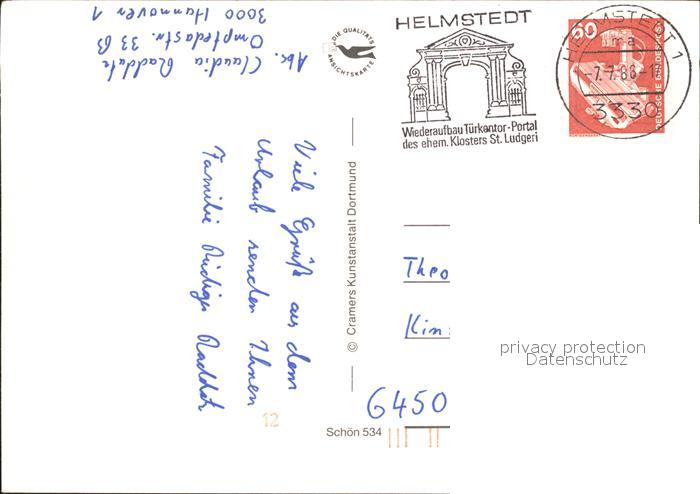 Abs. Claudia Raddatz
Omptedastr. 33 B
3000 Hannover 1
Viele Grüße aus dem
Urlaub senden Ihnen
Familie Rüdiger Raddatz
DIE QUALITÄTS
ANSICHTSKARTE
© Cramers Kunstanstalt Dortmund
HELMSTEDT
Wiederaufbau Türkentor-Portal
des ehem. Klosters St. Ludgeri
HELMSTEDT 1
ma
-7.7.86-1
3330
60
DEUTSCHE BUNDESPOST
Theo
Kin
6450
privacy protection
Datenschutz
12
Schön 534